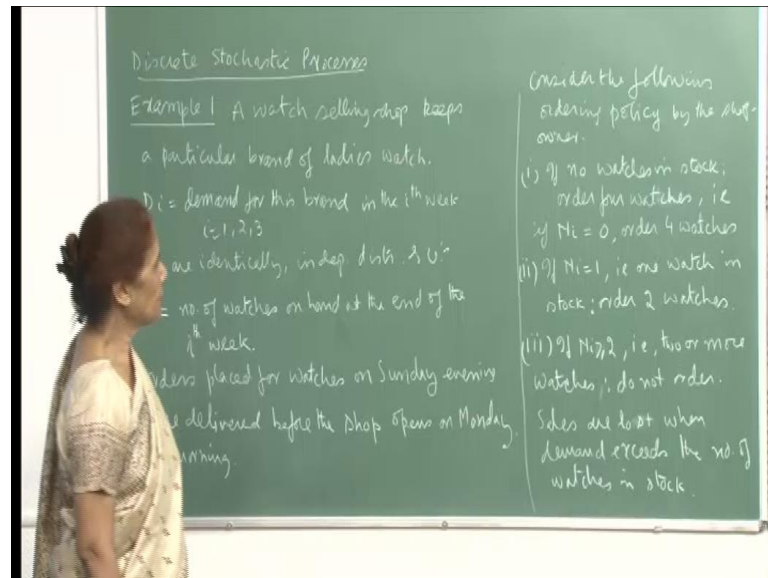 Discrete Stochastic Processes
Example 1 A watch selling shop keeps
a particular brand of ladies watch.
Di = demand for this brand in the ith week
i=1,2,3
are identically, indep. distr. r.v.'s
= no. of watches on hand at the end of the
ith week.
orders placed for watches on Sunday evening
delivered before the shop opens on Monday
Consider the following
ordering policy by the shop-
owner.
(i) If no watches in stock;
order four watches, ie
if Ni = 0, order 4 watches
(ii) If Ni=1, ie one watch in
stock; order 2 watches.
(iii) If Ni≥2, ie, two or more
watches; do not order.
Sales are lost when
demand exceeds the no. of
watches in stock.